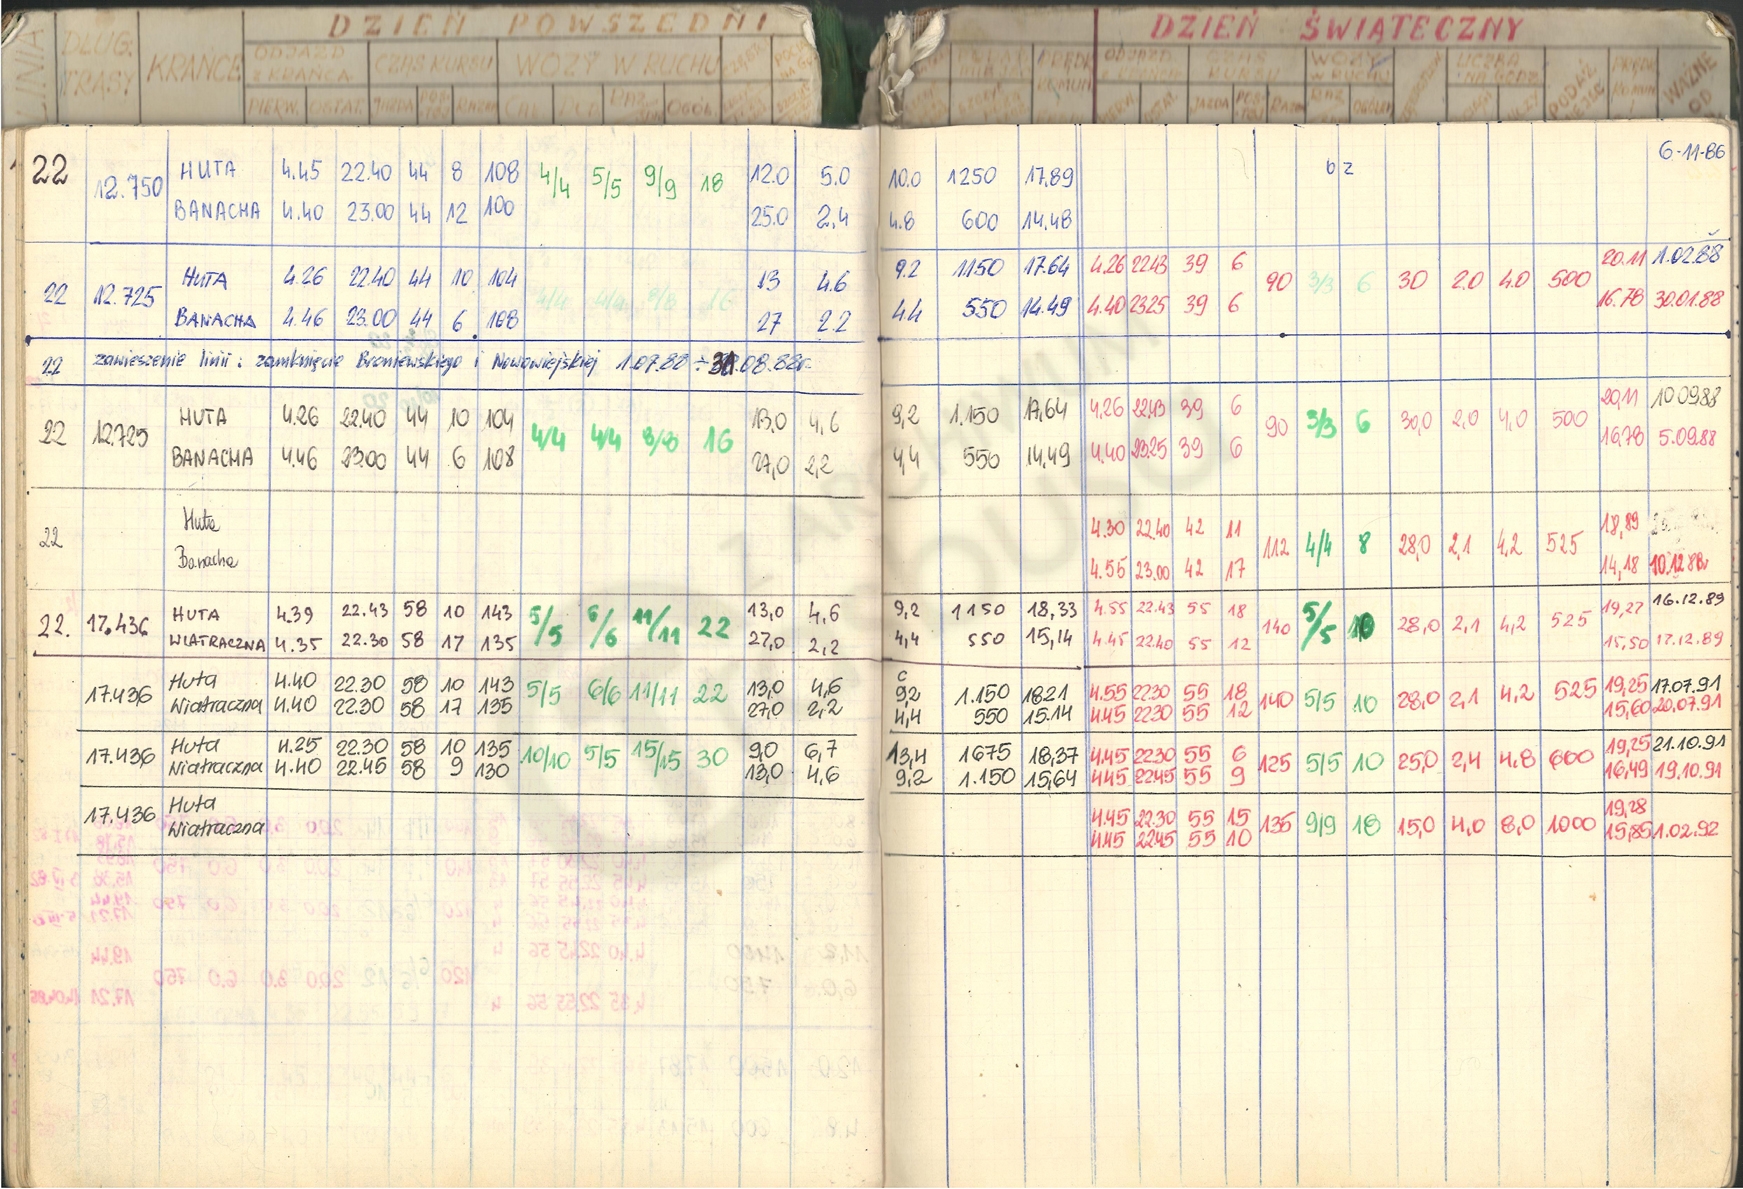 DZIEŃ POWSZEDNI DZIEŃ ŚWIĄTECZNY
LINIA DŁUG. TRASY KRAŃCE ODJAZD Z KRAŃCA CZAS KURSU WOZY W RUCHU
PIERW. OSTAT. JAZDA OGÓŁ.
WAŻNE OD
22 12.750 HUTA 4.45 22.40 44 8 108 4/4 5/5 9/9 18 12.0 5.0 10.0 1250 17.89 bz 6-11-86
BANACHA 4.40 23.00 44 12 100 25.0 2.4 4.8 600 14.48
22 12.725 HUTA 4.26 22.40 44 10 104 4/4 4/4 8/8 16 13 4.6 9.2 1150 17.64 4.26 22.43 39 6 90 3/3 6 30 2.0 4.0 500 20.11 1.02.88
BANACHA 4.46 23.00 44 6 108 27 2.2 4.4 550 14.49 4.40 23.25 39 6 16.78 30.01.88
22 zawieszenie linii: zamknięcie Broniewskiego i Nowowiejskiej 1.07.88 ÷ 31.08.88r.
22 12.725 HUTA 4.26 22.40 44 10 104 4/4 4/4 8/8 16 13,0 4,6 9,2 1.150 17,64 4.26 22.43 39 6 90 3/3 6 30,0 2,0 4,0 500 20,11 10.09.88
BANACHA 4.46 23.00 44 6 108 27,0 2,2 4,4 550 14,49 4.40 23.25 39 6 16,78 5.09.88
22 Huta 4.30 22.40 42 11 112 4/4 8 28,0 2,1 4,2 525 18,89
Banacha 4.56 23.00 42 17 14,18 10.12.88r
22. 17.436 HUTA 4.39 22.43 58 10 143 5/5 6/6 11/11 22 13,0 4,6 9,2 1150 18,33 4.55 22.43 55 18 140 5/5 10 28,0 2,1 4,2 525 19,27 16.12.89
WIATRACZNA 4.35 22.30 58 17 135 27,0 2,2 4,4 550 15,14 4.45 22.40 55 12 15,50 17.12.89
17.436 Huta 4.40 22.30 58 10 143 5/5 6/6 11/11 22 13,0 4,6 c 9,2 1.150 18.21 4.55 22.30 55 18 140 5/5 10 28,0 2,1 4,2 525 19,25 17.07.91
Wiatraczna 4.40 22.30 58 17 135 27,0 2,2 4,4 550 15.14 4.45 22.30 55 12 15,60 20.07.91
17.436 Huta 4.25 22.30 58 10 135 10/10 5/5 15/15 30 9,0 6,7 13,4 1675 18,37 4.45 22.30 55 6 125 5/5 10 25,0 2,4 4,8 600 19,25 21.10.91
Wiatraczna 4.40 22.45 58 9 130 13,0 4,6 9,2 1.150 15,64 4.45 22.45 55 9 16,49 19.10.91
17.436 Huta 4.45 22.30 55 15 135 9/9 18 15,0 4,0 8,0 1000 19,28
Wiatraczna 4.45 22.45 55 10 15,85 1.02.92